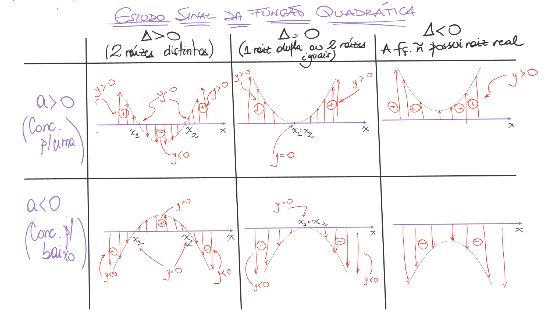 ESTUDO SINAL DA FUNÇÃO QUADRÁTICA
Δ>0
(2 raízes distintas)
Δ=0
(1 raiz dupla ou 2 raízes iguais)
Δ<0
A fç. ñ possui raiz real
a>0
(Conc. p/cima)
y>0
y=0
y>0
+
+
x₁
x₂
x
y<0
y>0
+
+
y>0
x₁=x₂
x
y=0
+
+
+
+
y>0
x
a<0
(Conc. p/ baixo)
y>0
+
x₁
x₂
x
-
-
y<0
y=0
y<0
y=0
x₁=x₂
x
-
-
y<0
y<0
x
-
-